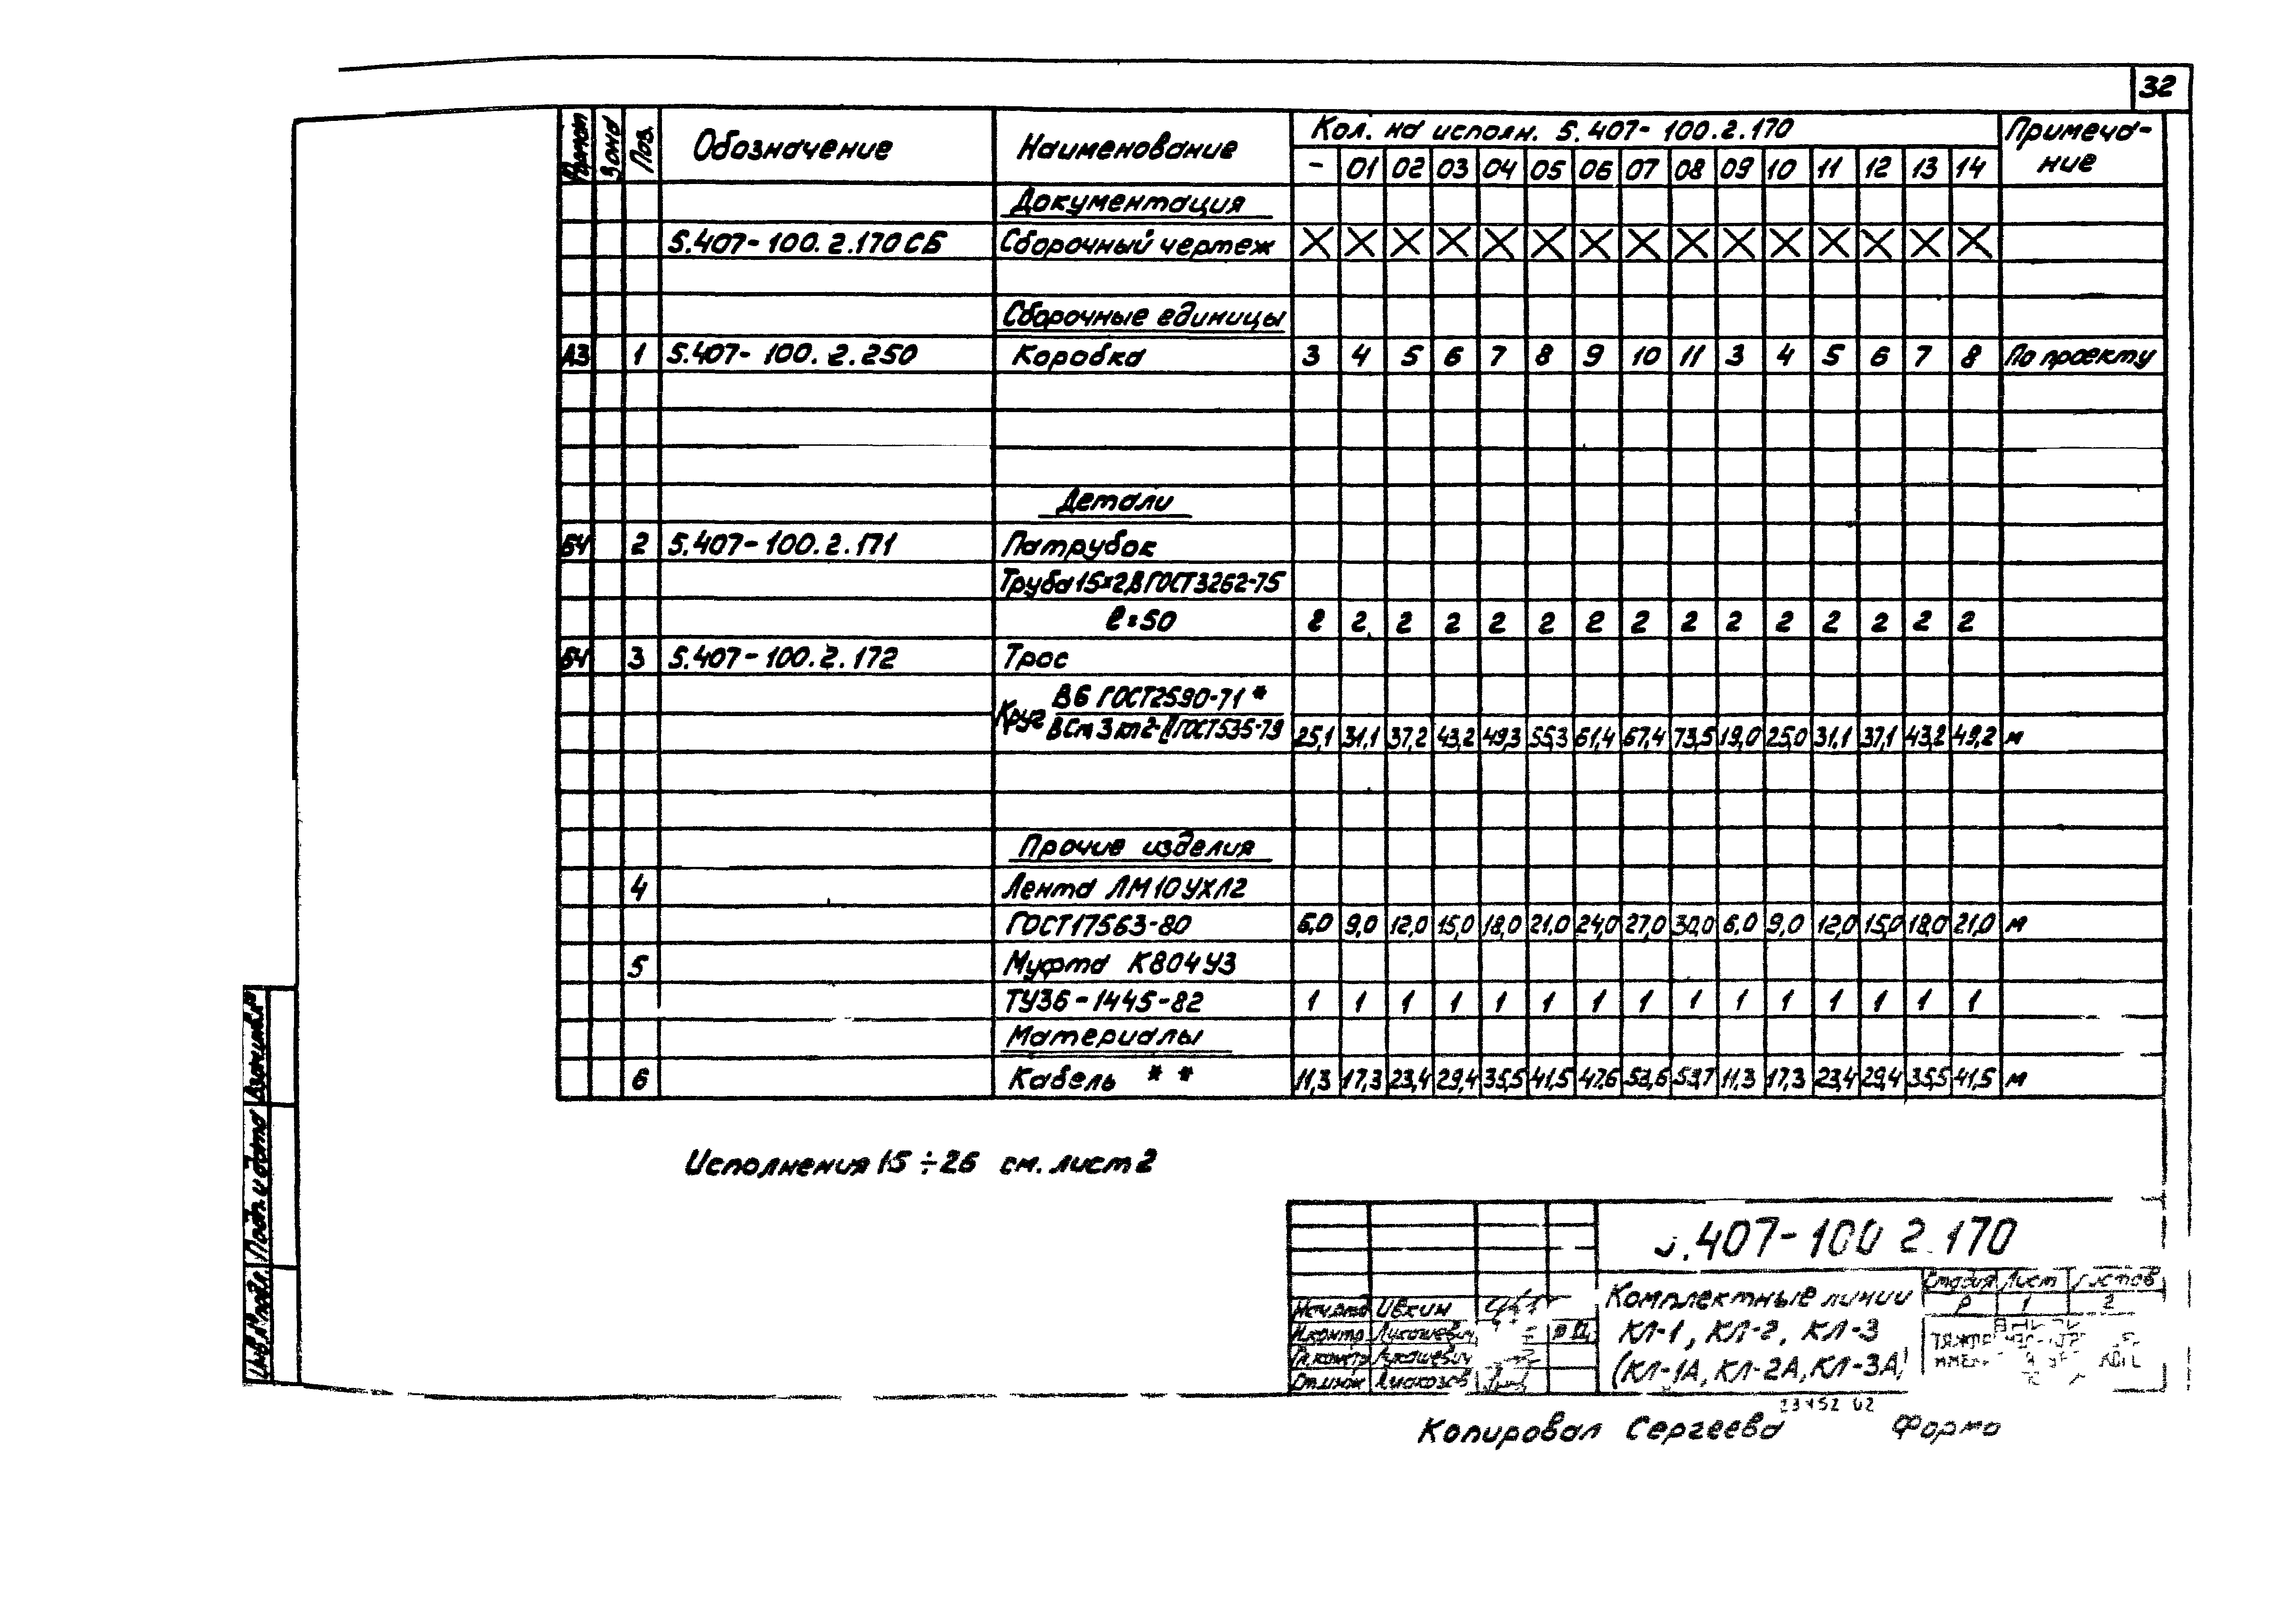 32
Формат Зона Поз. Обозначение Наименование Кол. на исполн. 5.407-100.2.170 Примеча-
ние
- 01 02 03 04 05 06 07 08 09 10 11 12 13 14
Документация
5.407-100.2.170СБ Сборочный чертеж X X X X X X X X X X X X X X X
Сборочные единицы
А3 1 5.407-100.2.250 Коробка 3 4 5 6 7 8 9 10 11 3 4 5 6 7 8 По проекту
Детали
БЧ 2 5.407-100.2.171 Патрубок
Труба 15×2,8 ГОСТ 3262-75
ℓ=50 2 2 2 2 2 2 2 2 2 2 2 2 2 2 2
БЧ 3 5.407-100.2.172 Трос
Круг В6 ГОСТ2590-71*
ВСт3кп2-II ГОСТ535-79 25,1 31,1 37,2 43,2 49,3 55,3 61,4 67,4 73,5 19,0 25,0 31,1 37,1 43,2 49,2 м
Прочие изделия
4 Лента ЛМ10УХЛ2
ГОСТ17563-80 6,0 9,0 12,0 15,0 18,0 21,0 24,0 27,0 30,0 6,0 9,0 12,0 15,0 18,0 21,0 м
5 Муфта К804У3
ТУ36-1445-82 1 1 1 1 1 1 1 1 1 1 1 1 1 1 1
Материалы
6 Кабель ** 11,3 17,3 23,4 29,4 35,5 41,5 47,6 53,6 53,7 11,3 17,3 23,4 29,4 35,5 41,5 м
Исполнения 15÷26 см. лист 2
.407-100 2.170
Комплектные линии
КЛ-1, КЛ-2, КЛ-3
(КЛ-1А, КЛ-2А, КЛ-3А)
Стадия Лист Листов
Р 1 2
Нач.отд Ивкин
Н.контр Лукашевич
Гл.констр Лукашевич
Ст.инж
Копировал Сергеева Форма
Инв.№подл. Подп. и дата Взам.инв.№